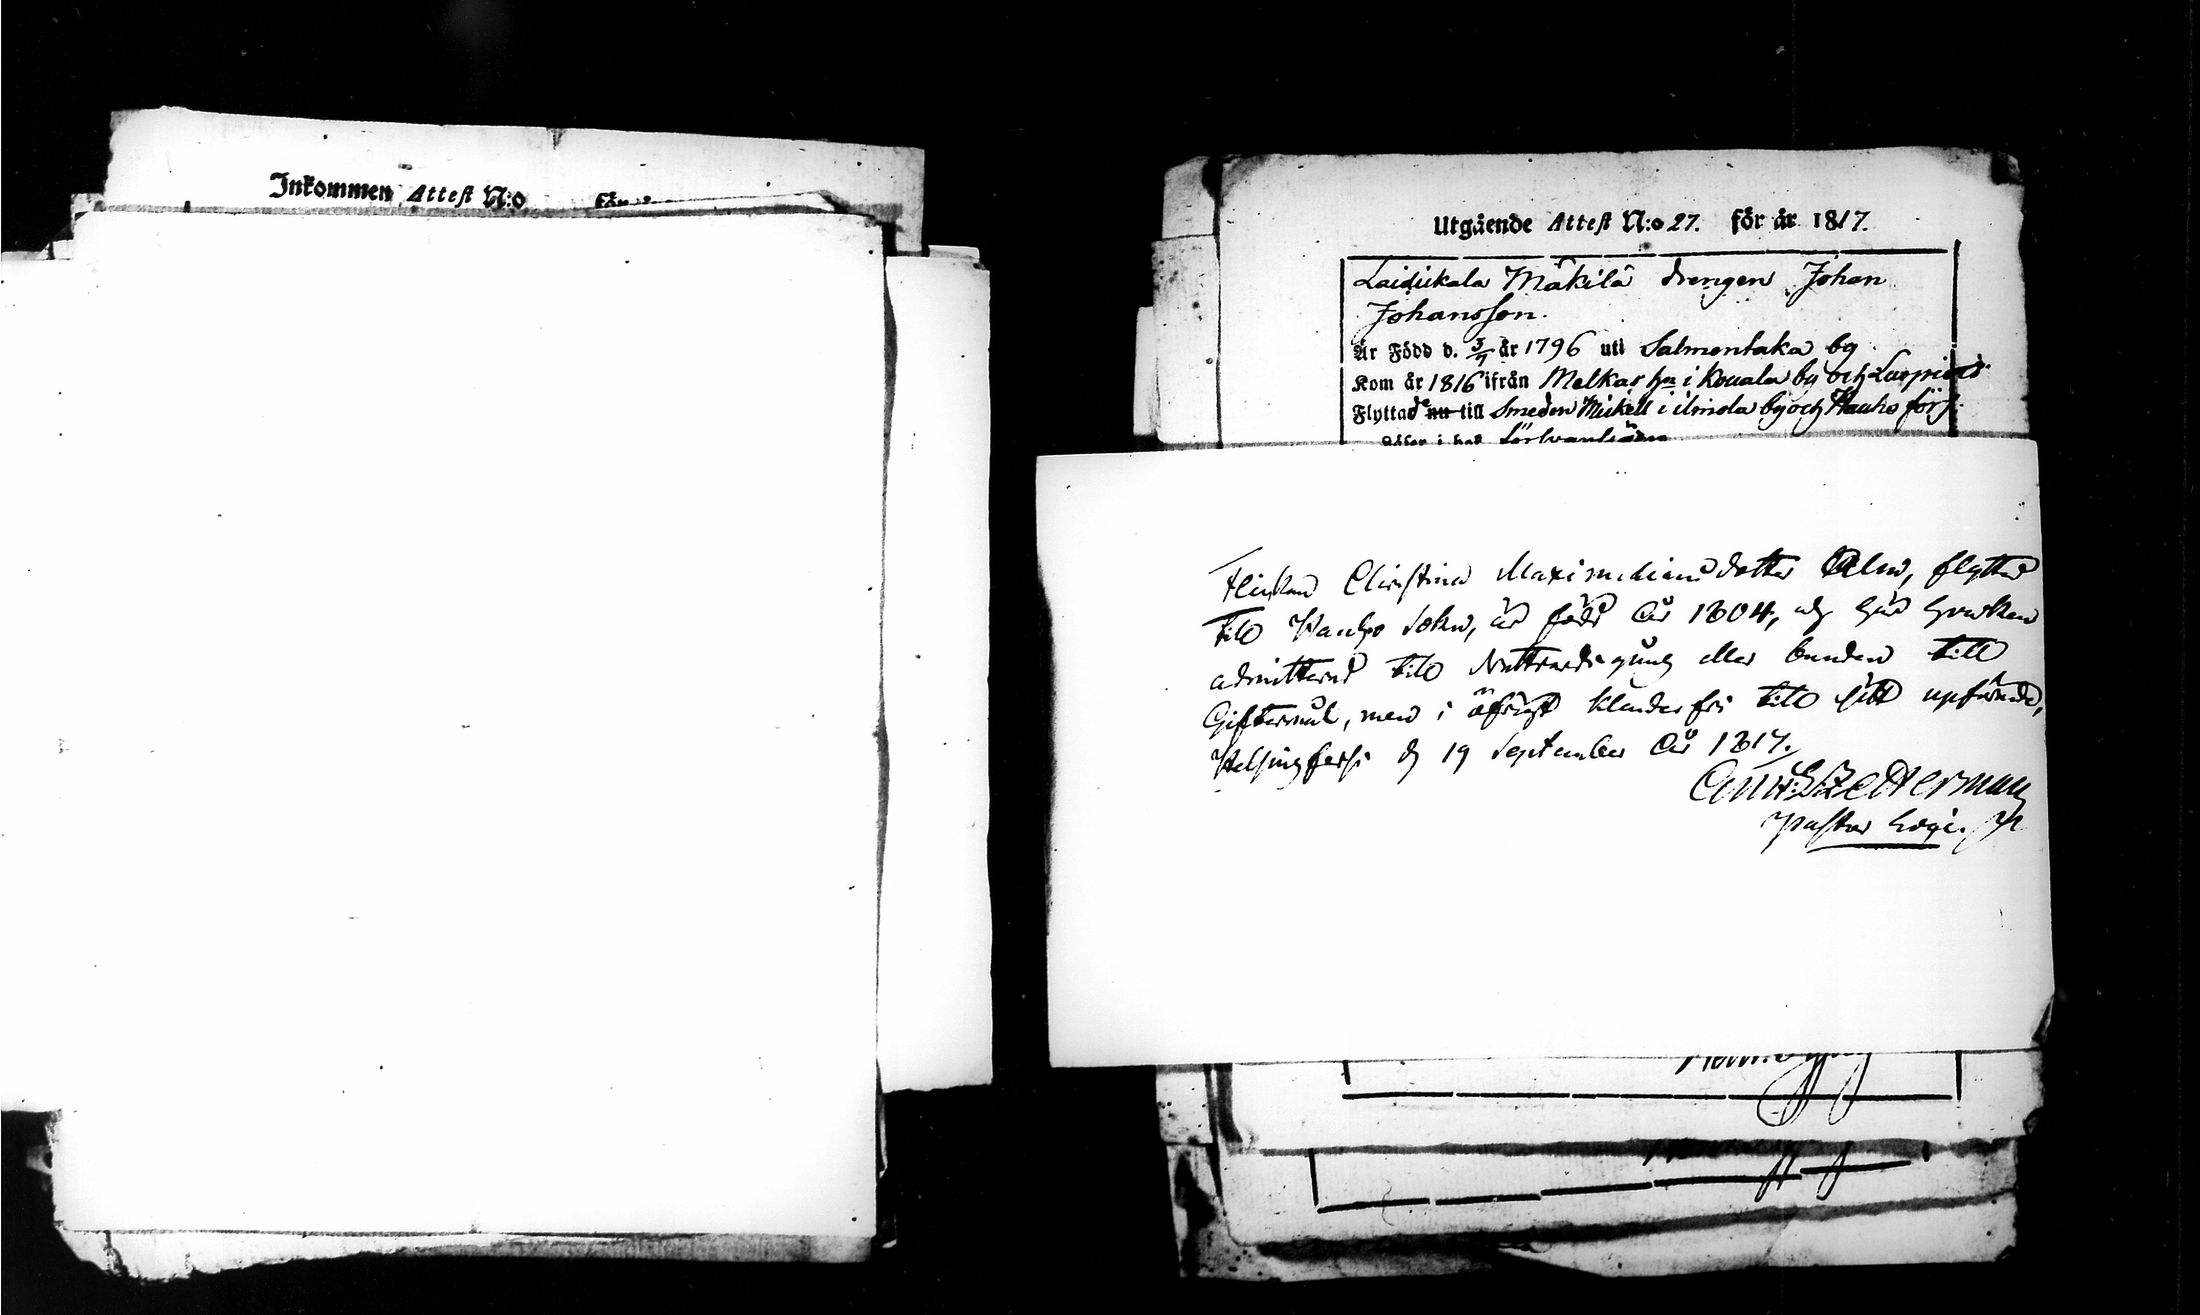 Inkommen Attest N:o för år
Utgående Attest N:o 27. för år 1817.
Laidikala Mäkilä drengen Johan
Johansson.
Är Född d. 3/7 år 1796 uti Salmentaka by
Kom år 1816 ifrån Melkas hn i Kouala by och Luopiois
Flyttade nu till Smeden Mickell i ilmola by och Hauho förs.
Läser i bok
Flickan Christina Maximiliansdotter Alm, flyttar
till Hauho Sokn, är född År 1804, och här hvarken
admitterad till Nattvardsgång eller bunden till
Giftermål, men i öfrigt klanderfri till sitt upförande,
Helsingfors d 19 September År 1817.
Zetterman
Pastor